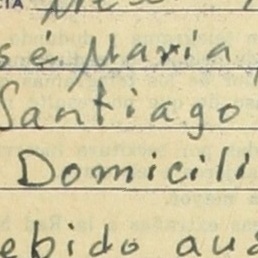 CIA
sé María
Santiago
Domicili
ebido aus